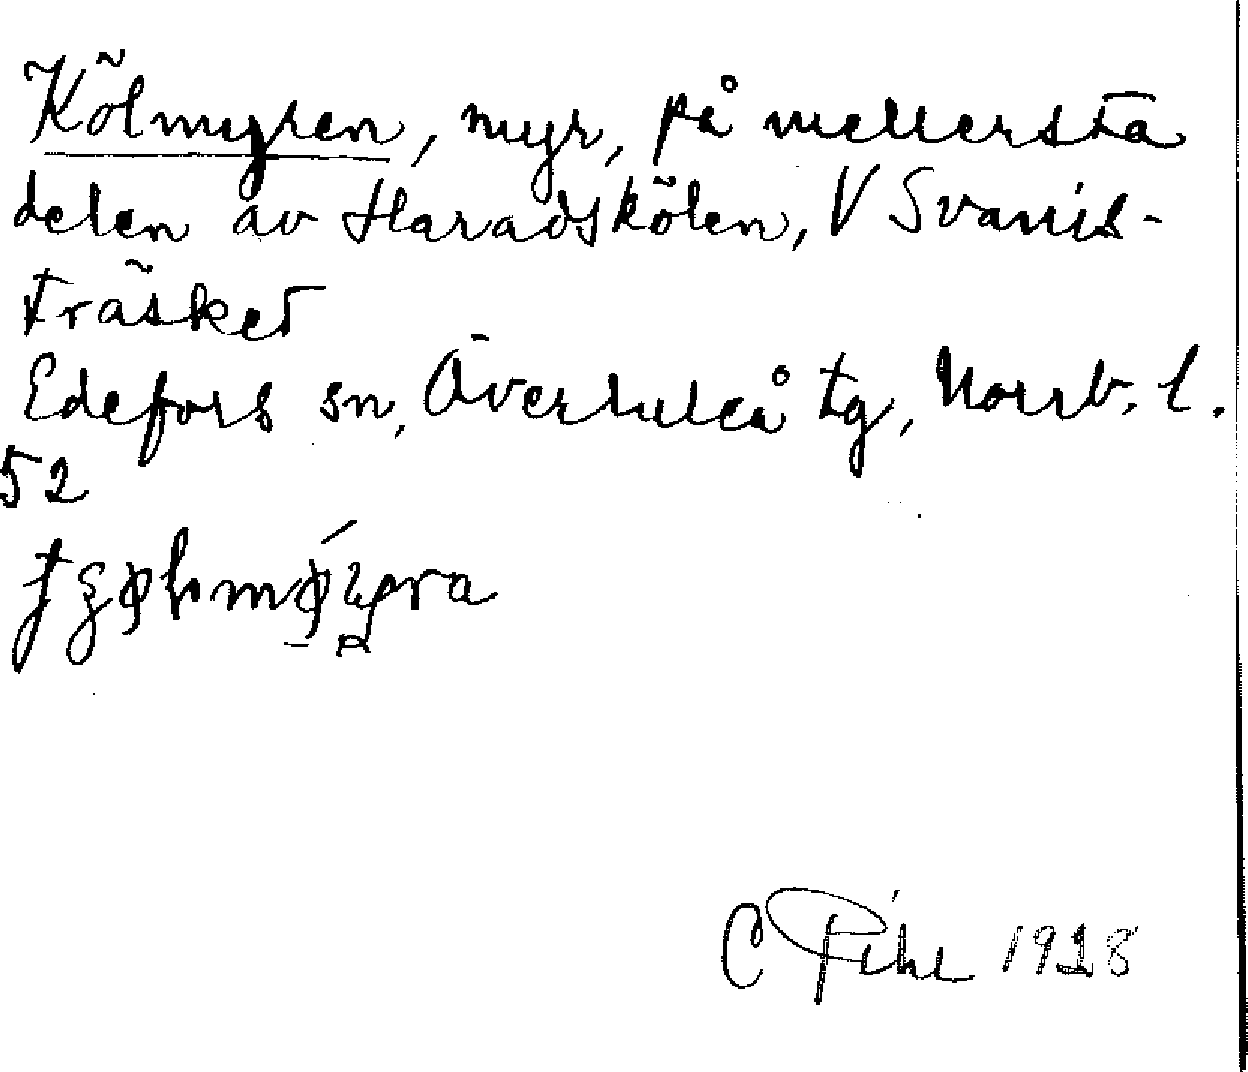 Kölmyren, myr, på mellersta
delen av Haradskölen, V Svanis-
träsket
Edefors sn, Överluleå tg, Norrb. l.
52
C Pihl 1928